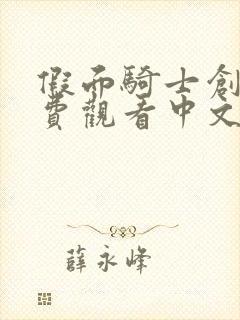 假面騎士創
費觀看中文
薛永峰